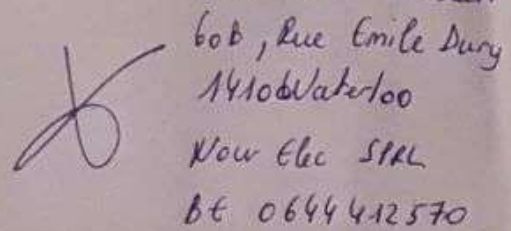 60b, Rue Emile Dury
1410 Waterloo
Now Elec SPRL
BE 0644412570